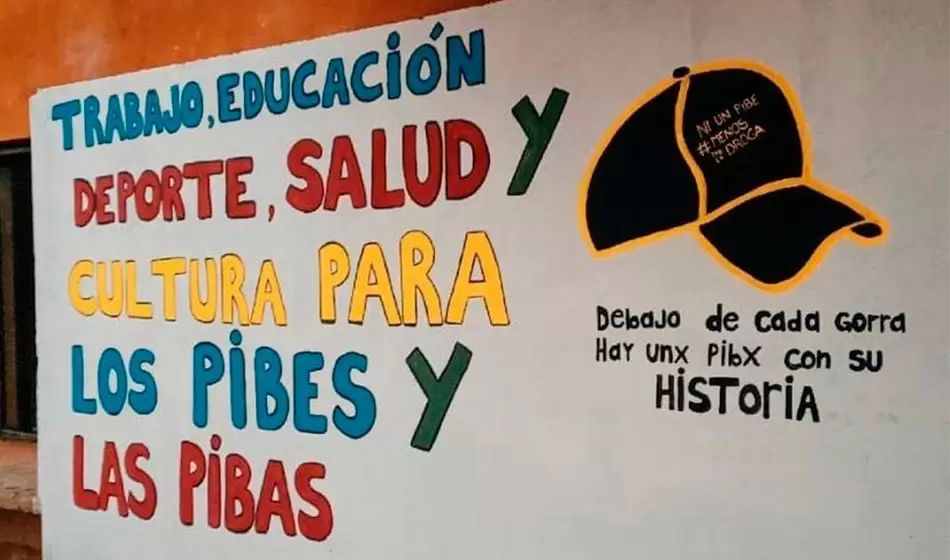 TRABAJO, EDUCACIÓN
DEPORTE, SALUD Y
CULTURA PARA
LOS PIBES Y
LAS PIBAS
NI UN PIBE
#MENOS
DROGA
Debajo de cada gorra
Hay unx Pibx con su
HiSToriA